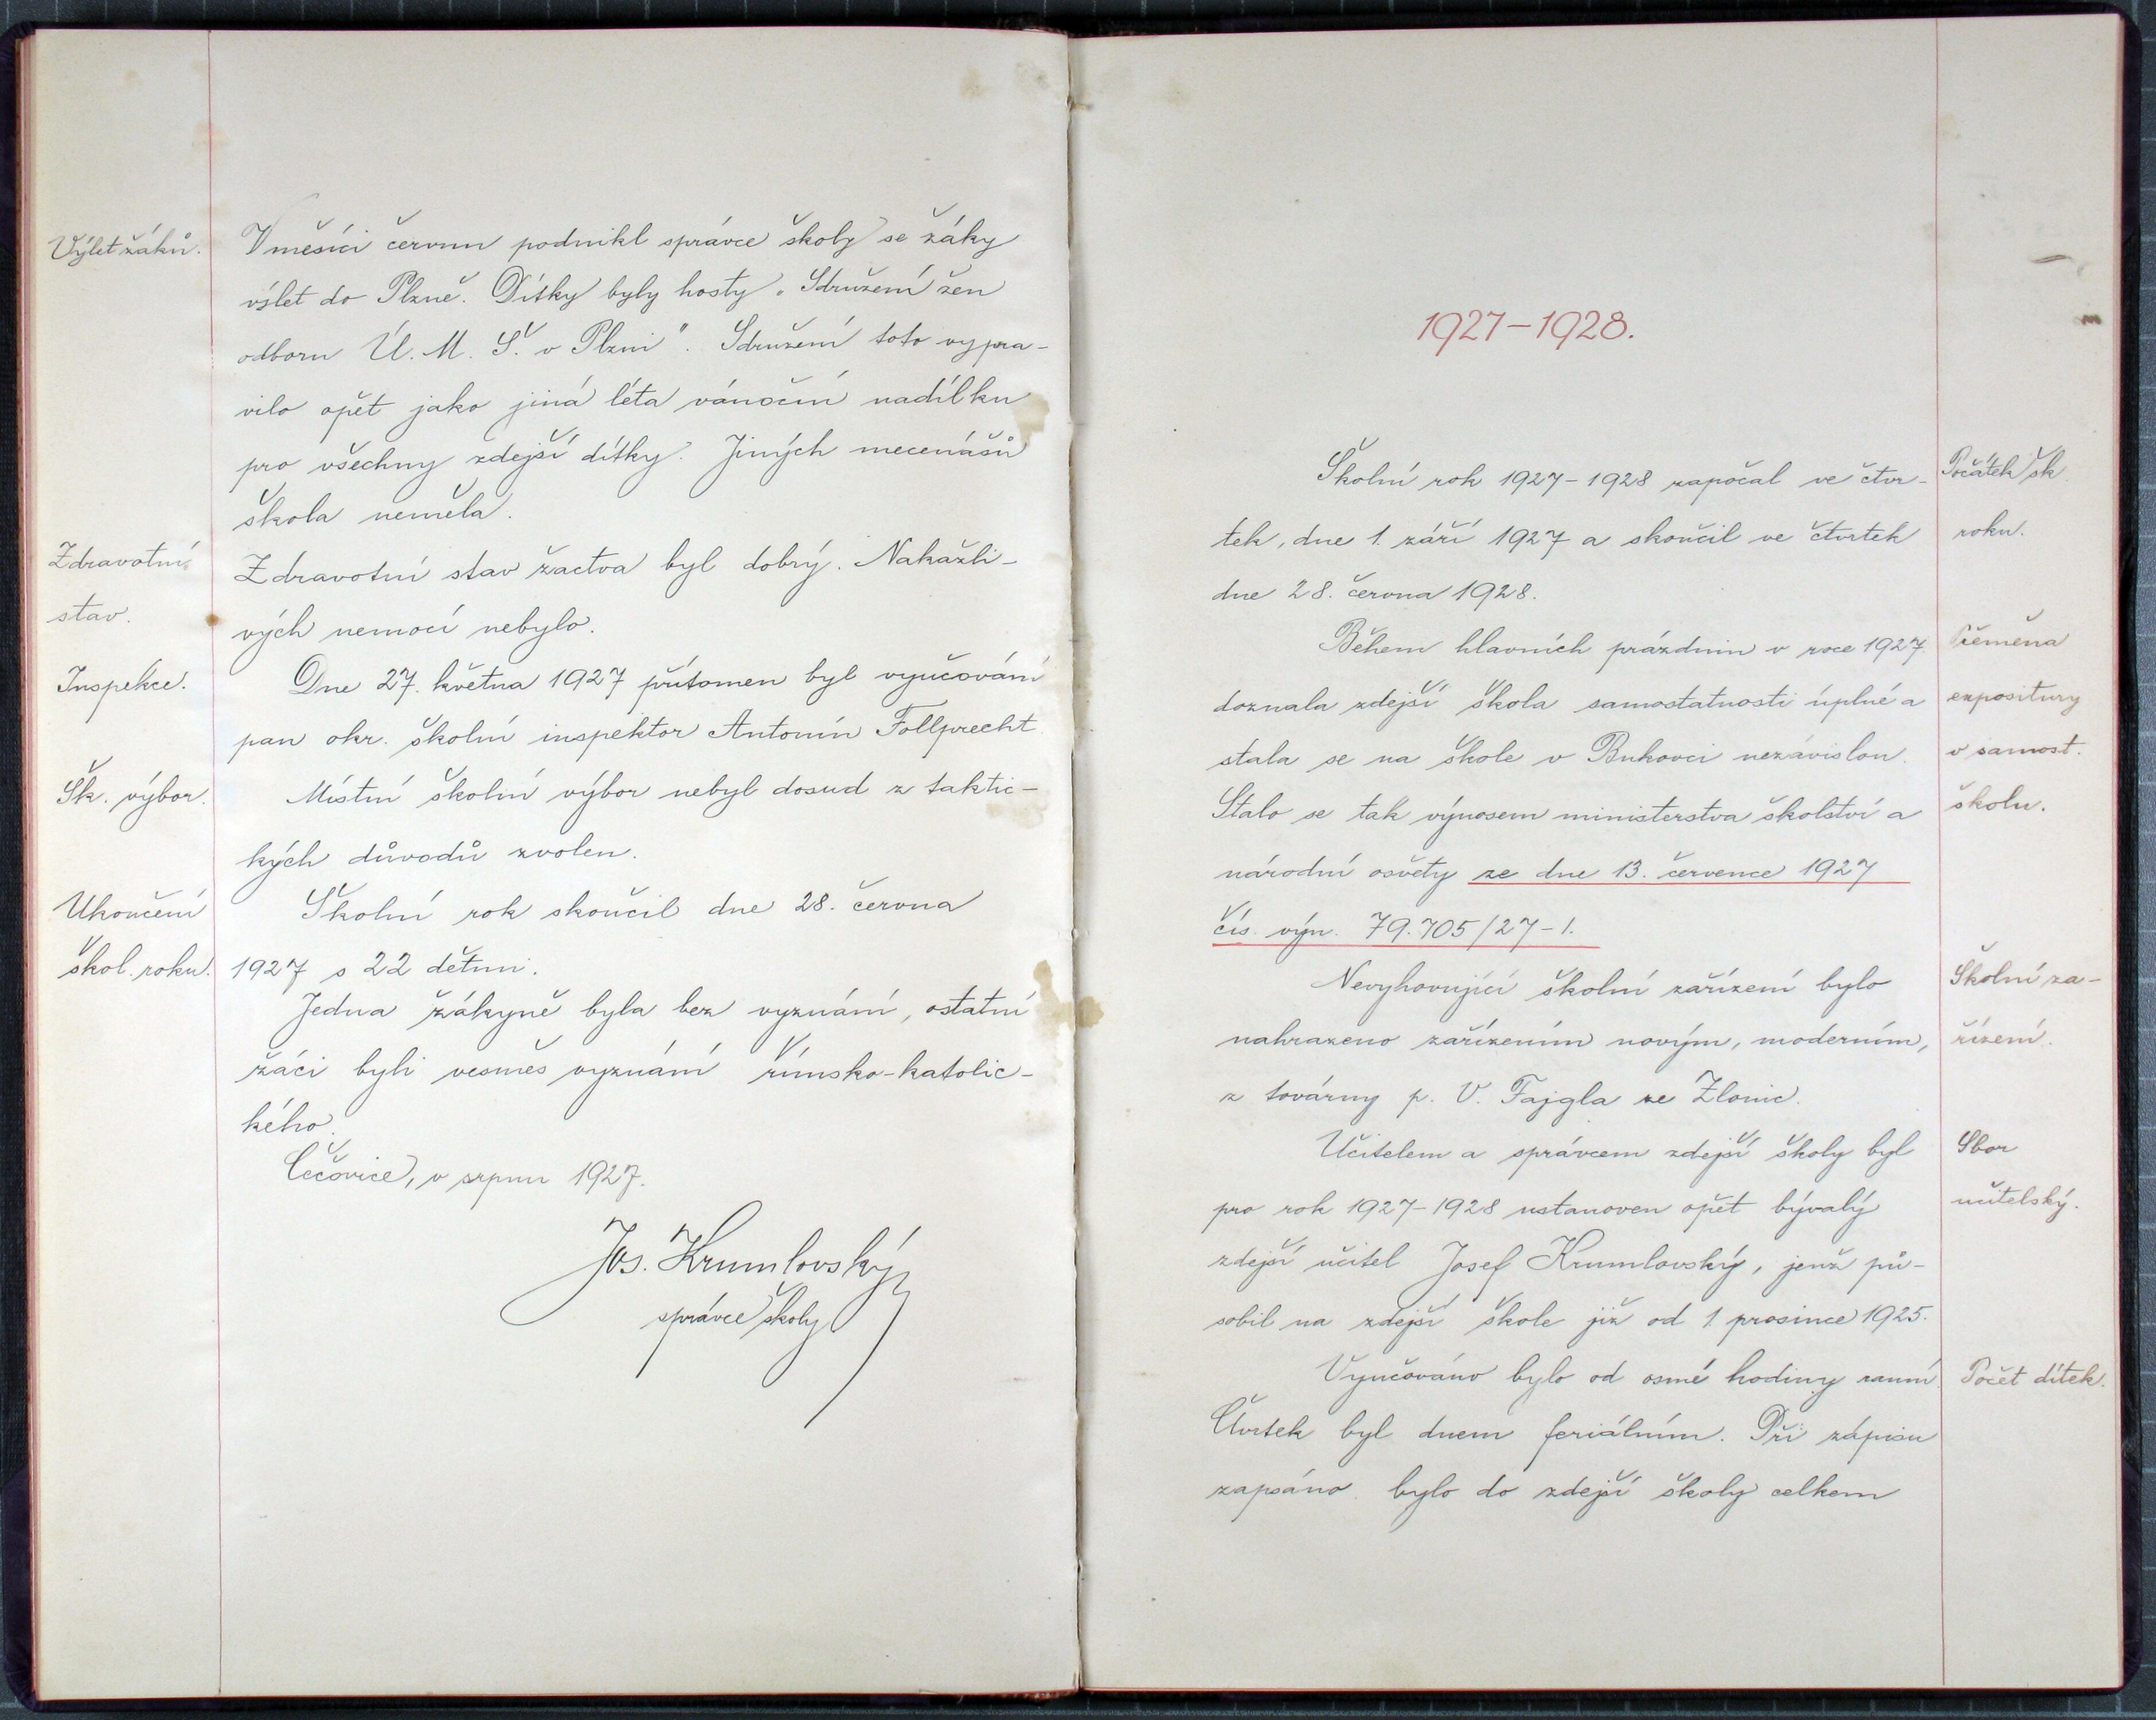 Výlet žáků.
V měsíci červnu podnikl správce školy se žáky
výlet do Plzně. Dítky byly hosty „Sdružení žen
odboru Ú. M. Š. v Plzni". Sdružení toto vypra-
vilo opět jako jiná léta vánoční nadílku
pro všechny zdejší dítky. Jiných mecenášů
škola neměla.
Zdravotní
stav.
Zdravotní stav žactva byl dobrý. Nakažli-
vých nemocí nebylo.
Inspekce.
Dne 27. května 1927 přítomen byl vyučování
pan okr. školní inspektor Antonín Follprecht.
Šk. výbor.
Místní školní výbor nebyl dosud z taktic-
kých důvodů zvolen.
Ukončení
škol. roku.
Školní rok skončil dne 28. června
1927 s 22 dětmi.
Jedna žákyně byla bez vyznání, ostatní
žáci byli vesměs vyznání římsko-katolic-
kého.
Čečovice, v srpnu 1927.
Jos. Krumlovský
správce školy
1927-1928.
Školní rok 1927-1928 započal ve čtvr-
tek, dne 1. září 1927 a skončil ve čtvrtek
dne 28. června 1928.
Počátek šk.
roku.
Během hlavních prázdnin v roce 1927
doznala zdejší škola samostatnosti úplné a
stala se na škole v Bukovci nezávislou.
Stalo se tak výnosem ministerstva školství a
národní osvěty ze dne 13. července 1927
čís. výn. 79.705/27-1.
Přeměna
expositury
v samost.
školu.
Nevyhovující školní zařízení bylo
nahrazeno zařízením novým, moderním,
z továrny p. V. Fajgla ze Zlonic.
Školní za-
řízení.
Učitelem a správcem zdejší školy byl
pro rok 1927-1928 ustanoven opět bývalý
zdejší učitel Josef Krumlovský, jenž pů-
sobil na zdejší škole již od 1. prosince 1925.
Sbor
učitelský.
Vyučováno bylo od osmé hodiny ranní.
Čtvrtek byl dnem feriálním. Při zápisu
zapsáno bylo do zdejší školy celkem
Počet dítek.